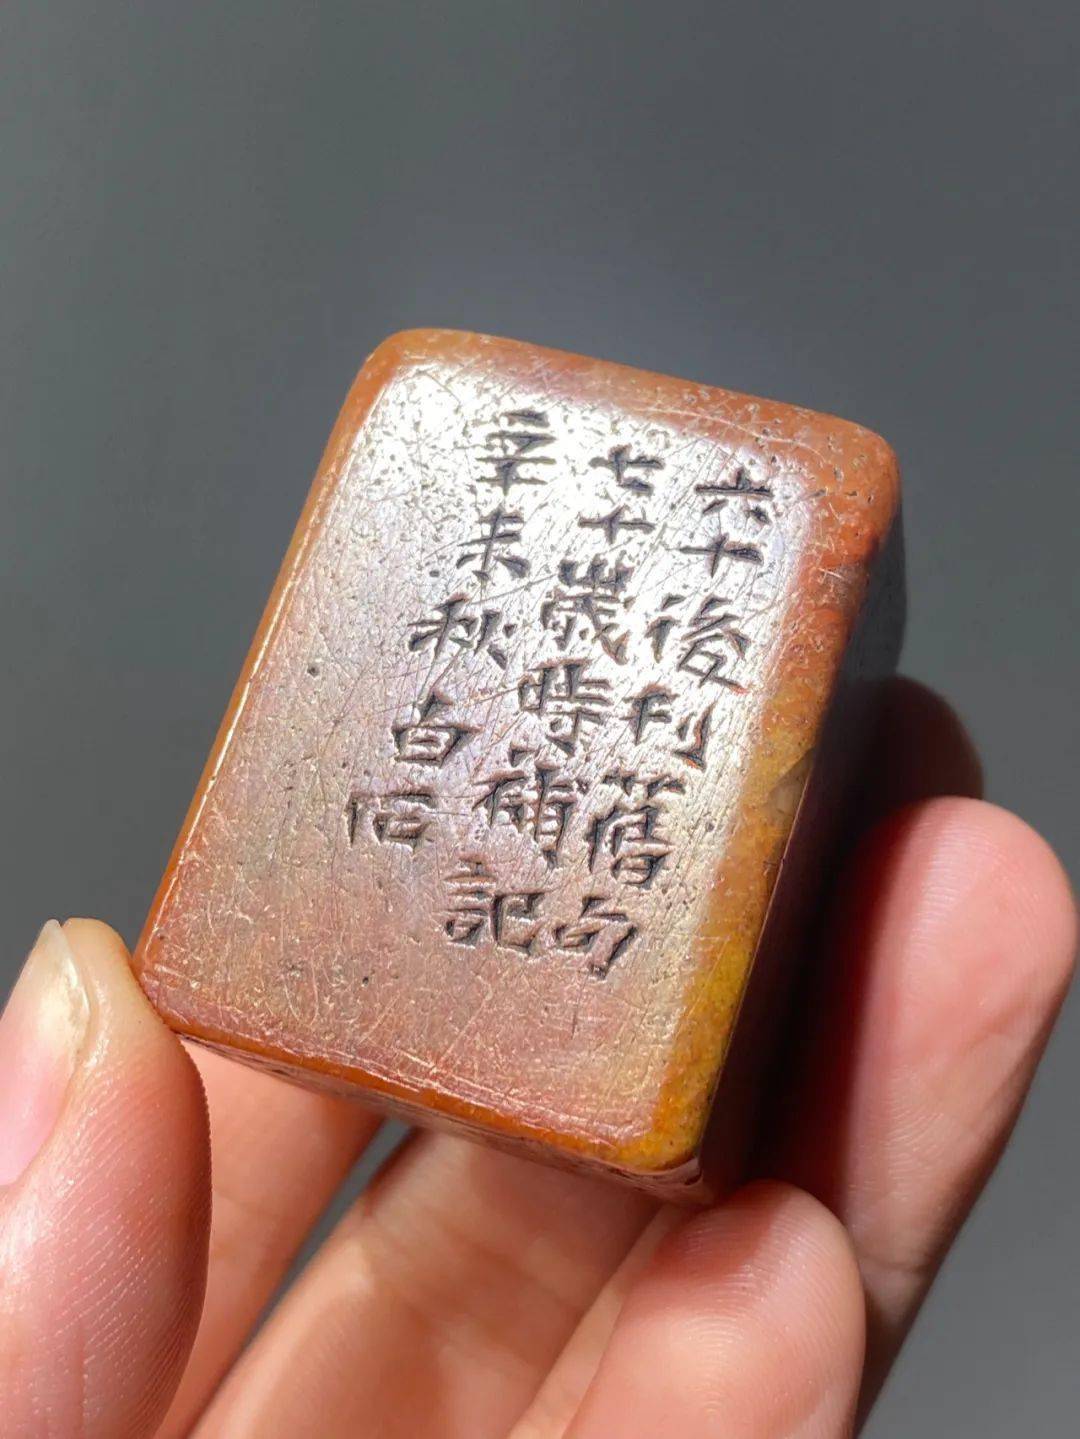 六十後刊舊句
七十歲時補記
辛未秋白石